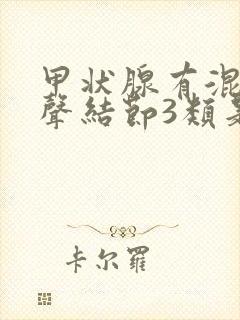 甲状腺有混
聲結節3類
卡尔羅